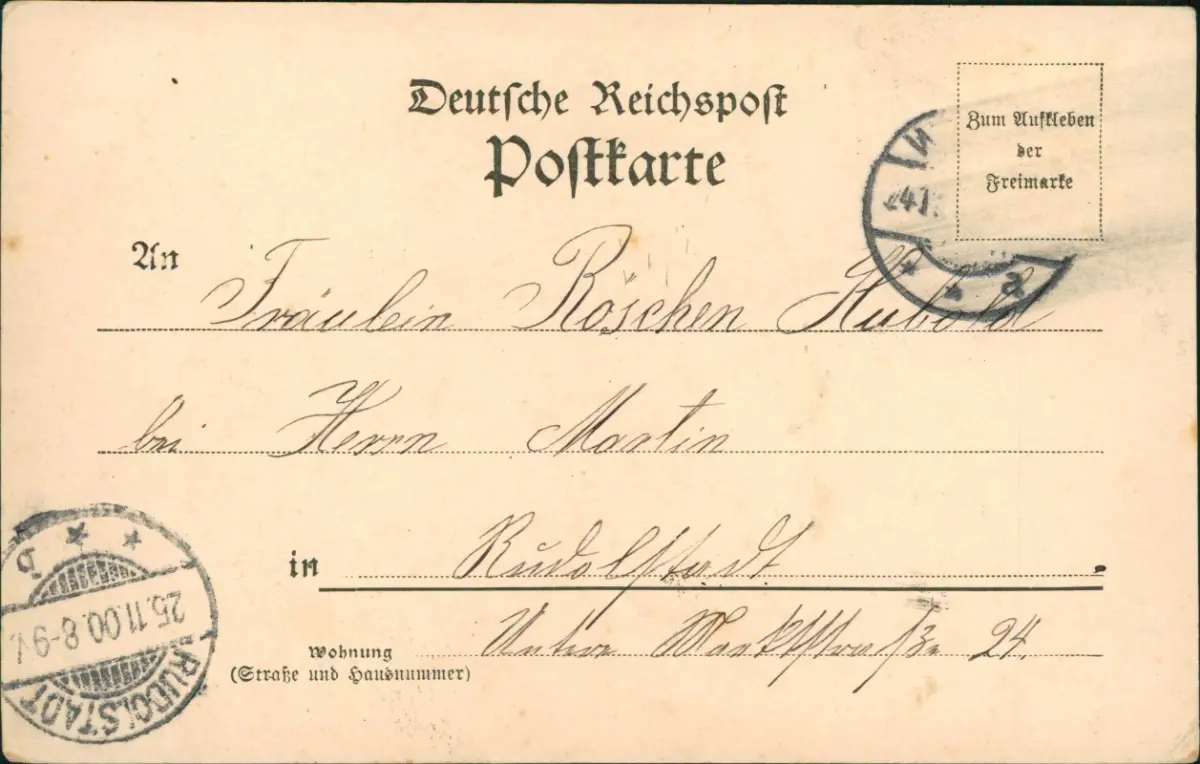 Deutsche Reichspost
Postkarte
Zum Aufkleben
der
Freimarke
24.1
a
An Fräulein Röschen Hubold
bei Herrn Martin
in Rudolstadt
Wohnung
(Straße und Hausnummer)
Untere Marktstraße 24.
RUDOLSTADT
25.11.00.8-9V.